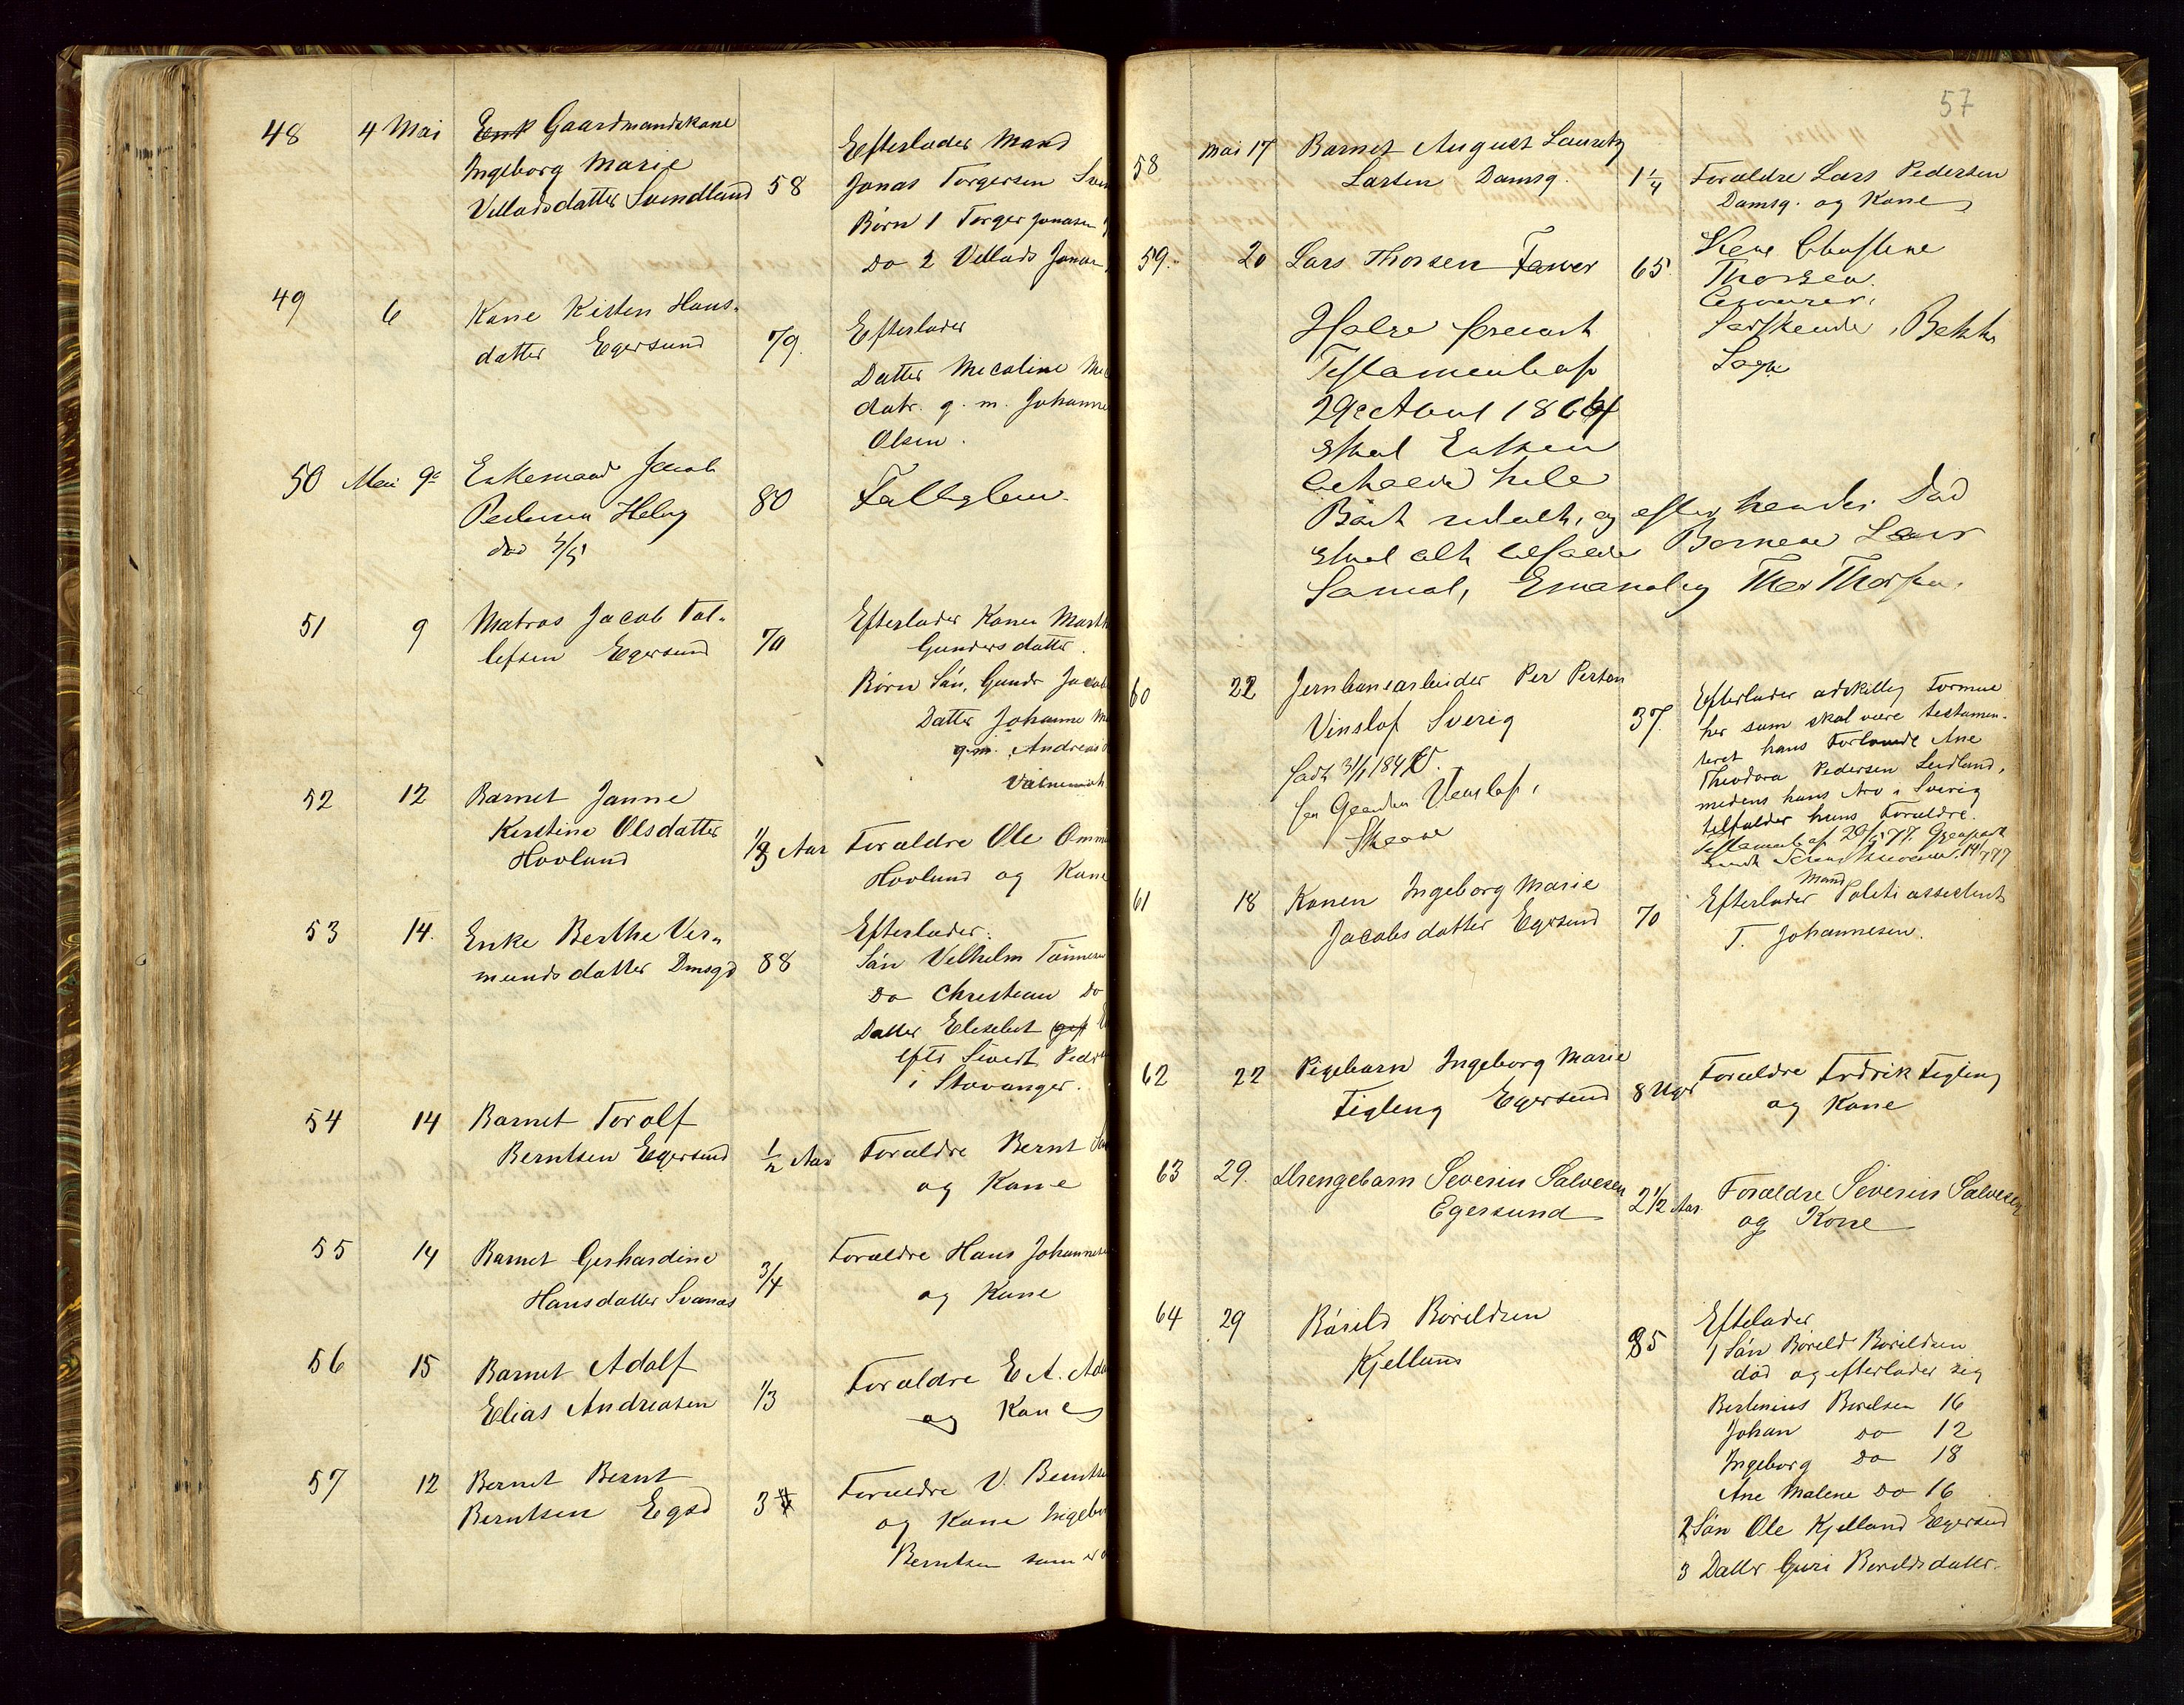 48 4 Mai Enk Gaardmandskone
Ingeborg Marie
Velladsdatter Svindland 58
Efterlader Mand
Jonas Torgersen
Børn 1 Torger Jonasen
Do 2 Vellads Jonas
49 6 Kone Kisten Hans-
datter Egersund 79.
Efterlader
Datter Mecaline
datr. g. m. Johanne
Olsen.
50 Mai 9de Enkemand Jacob
Pedersen Helvig 80
død 4/5
Fattiglem
51 9 Matros Jacob Tol-
lefsen Egersund 70
Efterlader Kone Marth
Gundersdatter.
Børn Sön, Gundr Jacob
Datter Johanne
g.m. Andreas
52 12 Barnet Janne
Kirstine Olsdatter
Hovland 1/3 Aar
Forældre Ole Omm
Hovland og Kone
53 14. Enke Berthe Ver-
mundsdatter Dmsgd 88
Efterlader:
Sön Velhelm Tönnesen
Do Christian Do
Datter Elesebet gift
eftr Sivert Peders
i Stavanger.
54 14 Barnet Torolf
Berntsen Egersund 1/2 Aar
Forældre Bernt
og Kone
55 14 Barnet Gerhardine
Hansdatter Svanæs 3/4
Forældre Hans Johannesen
og Kone
56 15 Barnet Adolf
Elias Andreasen 1/3
Forældre E A. And
og Kone
57 12 Bernet Bernt
Berntsen Egsd 3
Forældre V. Berntse
og Kone Ingebor
Berntsen som er
57
58 Mai 17 Barnet August Lauritz
Larsen Damsg. 1 1/4
Forældre Lars Pedersen
Damsg. og Kone
59. 20 Lars Thorsen 65.
Thorsen.
Testament af
29de April 1864
Skal Enken
beholde hele
Boet udelt, og efter hendes Död
skal alt tilfalde Børnene
Samuel, Emanuel og Thor Thorsen.
60 22 Jernbanearbeider Per Persen
Vinslof Sverig 37.
födt 31/1 1840.
Skaane
Efterlader adskillig Formue
her som skal være testamen-
teret hans Forlovede Ane
Theodora Pedersen Leidland,
medens hans Arv i Sverig
tilfalder hans Forældre.
Testament af 20/5 77.
61 18 Konen Ingeborg Marie
Jacobsdatter Egersund 70
Efterlader Mand Politi assestent
T. Johannesen.
62 22 Pigebarn Ingeborg Marie
Figling Egersund 8 Uger
Forældre Fredrik Figling
og Kone
63 29. Drengebarn Severin Salvesen
Egersund 2 1/2 Aar.
Forældre Severin Salvesen
og Kone
64 29 Börild Börildsen
Kjelland 85
Eftelader
1 Sön Börild Börildsen
död og efterlader sig
Bertinius Börilsen 16
Johan do 12
Ingeborg Do 18
Ane Malene Do 16
2 Sön Ole Kjelland Egersund
3 Dattr Guri Börildsdattr.